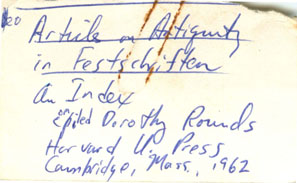 Articles on Antiquity
in Festschriften
An Index
compiled Dorothy Rounds
Harvard U. Press
Cambridge, Mass., 1962